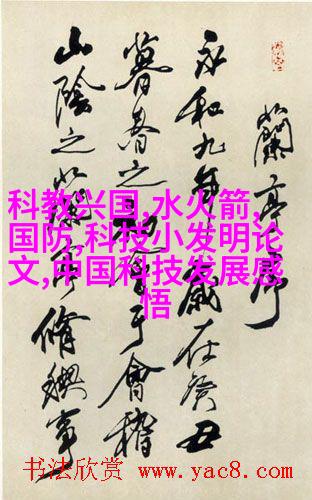 蘭亭序
永和九年歲在癸丑
暮春之初會于會稽
山陰之蘭亭脩禊事
科教兴国,水火箭,
国防,科技小发明论
文,中国科技发展感
悟
书法欣赏 www.yac8.com